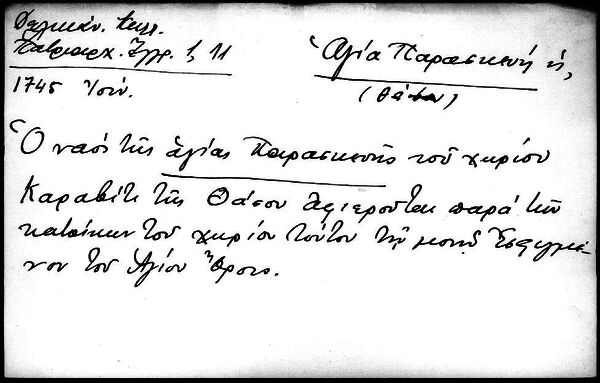 Πατριαρχ. Ἔγγρ. 1, 11
1745 Ἰουν.
Ἁγία Παρασκευή ἡ,
(Θάσου)
Ὁ ναός τῆς ἁγίας Παρασκευῆς τοῦ χωρίου
Καραβίτι τῆς Θάσου ἀφιεροῦται παρά τῶν
κατοίκων τοῦ χωρίου τούτου τῇ μονῇ Ἐσφιγμέ-
νου τοῦ Ἁγίου Ὄρους.